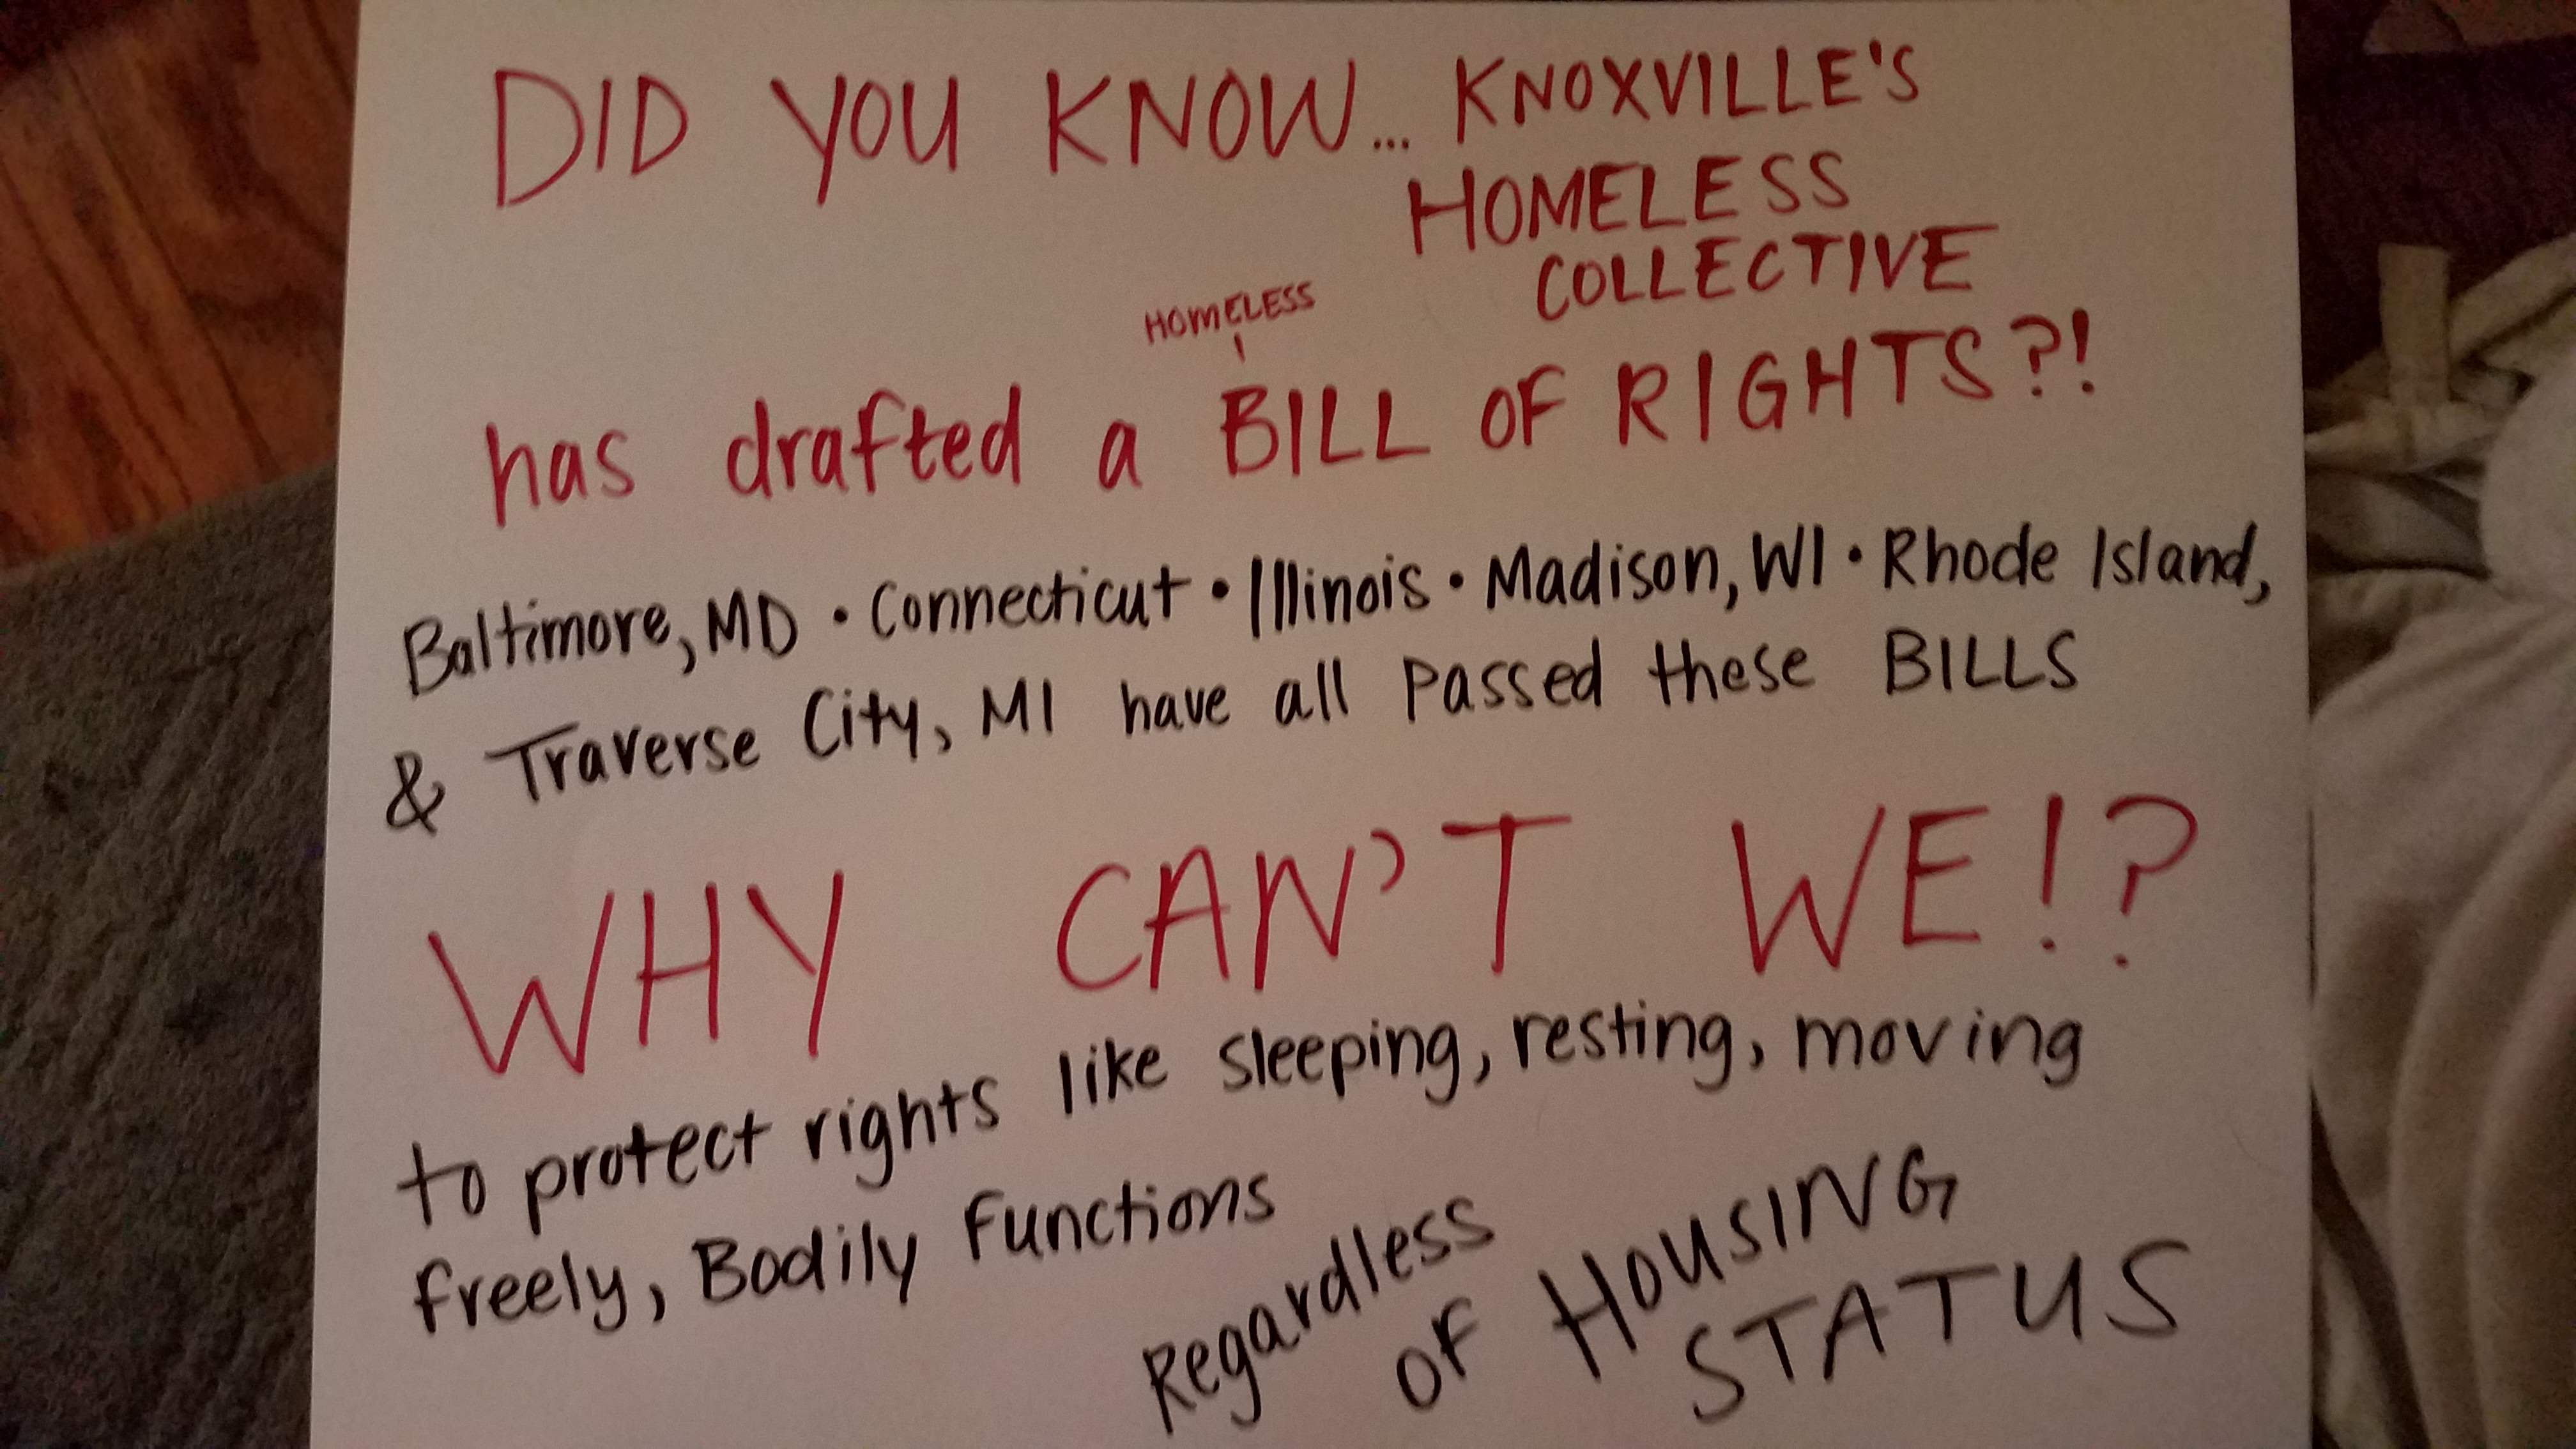 DID YOU KNOW... KNOXVILLE'S
HOMELESS
COLLECTIVE
HOMELESS
has drafted a BILL OF RIGHTS?!
Baltimore, MD • Connecticut • Illinois • Madison, WI • Rhode Island,
& Traverse City, MI have all Passed these BILLS
WHY CAN'T WE!?
to protect rights like sleeping, resting, moving
freely, Bodily Functions
Regardless
OF HOUSING
STATUS